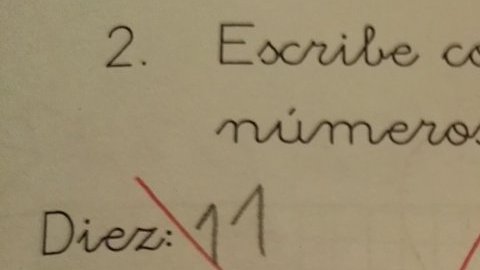 2. Escribe
números
Diez: 11